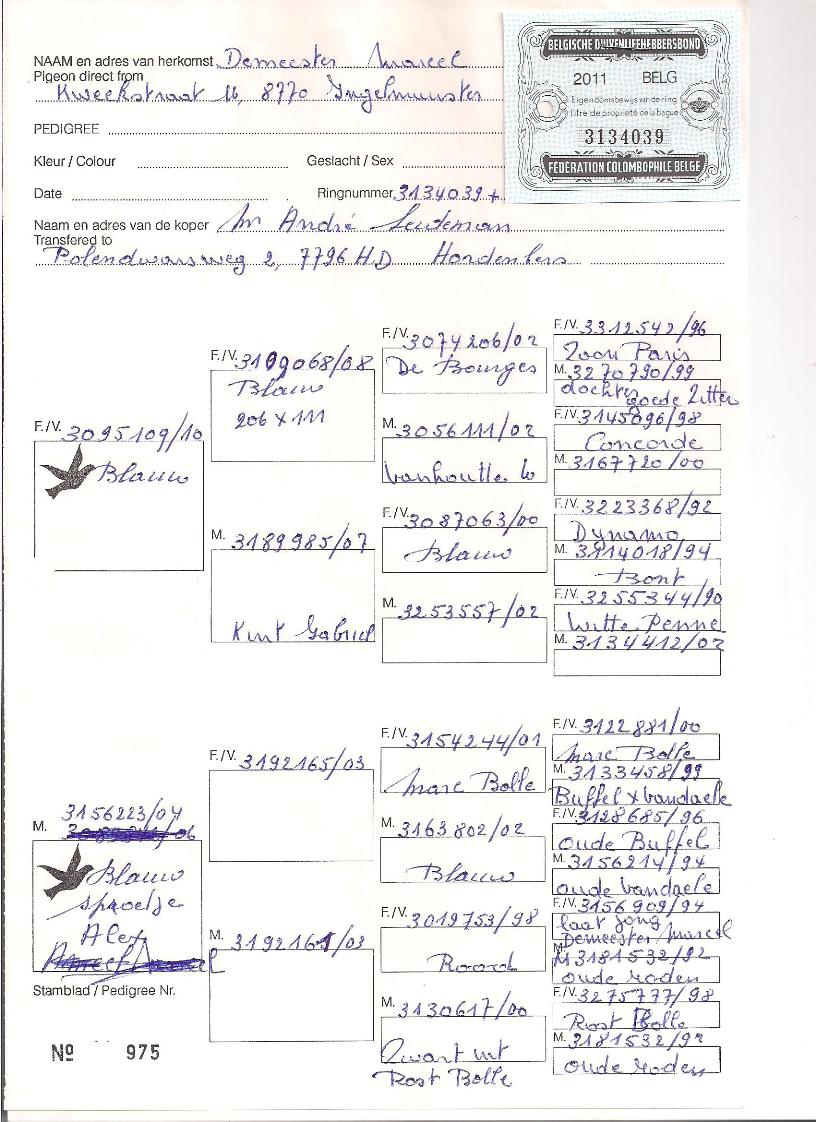 NAAM en adres van herkomst Demeester Marcel
Pigeon direct from
Kweekstraat 16, 8770 Ingelmunster
BELGISCHE DUIVENLIEFHEBBERSBOND
2011 BELG
Eigendomsbewijs van de ring
Titre de propriété de la bague
3134039
FÉDÉRATION COLOMBOPHILE BELGE
PEDIGREE
Kleur / Colour Geslacht / Sex
Date Ringnummer 3134039+
Naam en adres van de koper Mr André
Transfered to
7796 HD
F./V. 3095109/10
Blauw
F./V. 3109068/08
Blauw
206 x 111
M. 3189985/07
Kint Gabriel
F./V. 3074206/02
De Bourges
M. 3056111/02
Vanhoutte
F./V. 3087063/00
Blauw
M. 3253557/02
F./V. 3312542/96
Zoon Paris
M. 3270790/99
dochter goede Zitter
F./V. 3145096/98
Concorde
M. 3167720/00
F./V. 3223368/92
Dynamo
M. 3114018/94
Bont
F./V. 3255344/90
Witte Penne
M. 3134412/02
3156223/04
M.
Blauw
sproetje
Alex
F./V. 3192165/03
M. 3192161/03
F./V. 3154244/01
Marc Bolle
M. 3163802/02
Blauw
F./V. 3019753/98
Rood
M. 3130617/00
Zwart uit
Rost Bolle
F./V. 3122881/00
Marc Bolle
M. 3133458/99
Buffel x Vandaele
F./V. 3128685/96
oude Buffel
M. 3156214/94
oude Vandaele
F./V. 3156909/94
laat jong
Demeester Marcel
M 3181532/92
oude roden
F./V. 3275777/98
Rost Bolle
M. 3181532/92
oude roden
Stamblad / Pedigree Nr.
Nº 975